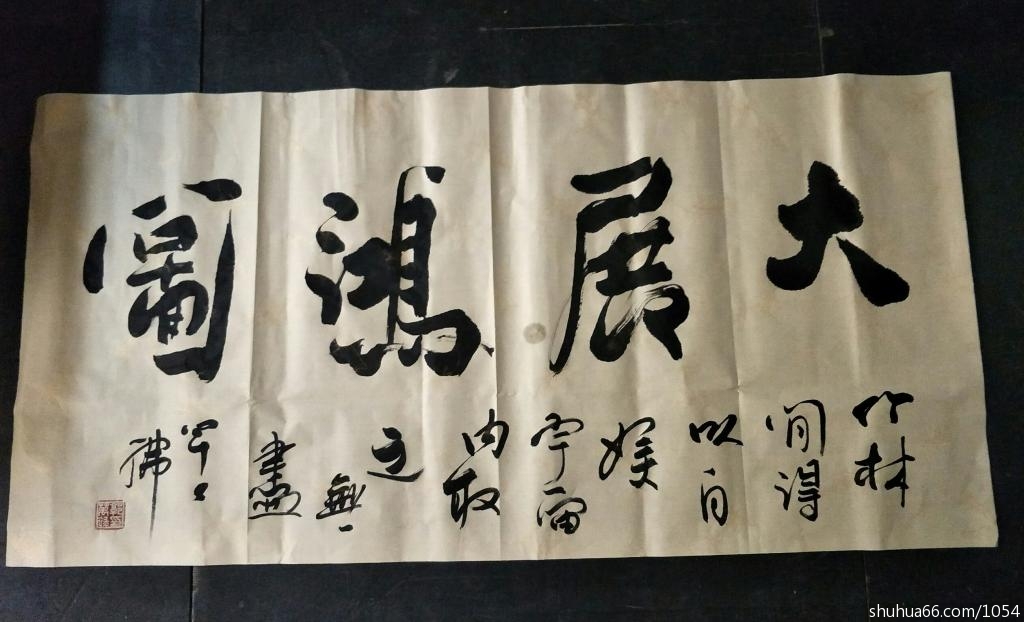 大展鴻圖
竹林
間得
以自
娱
宇宙
内取
之
無
盡
佛
shuhua66.com/1054